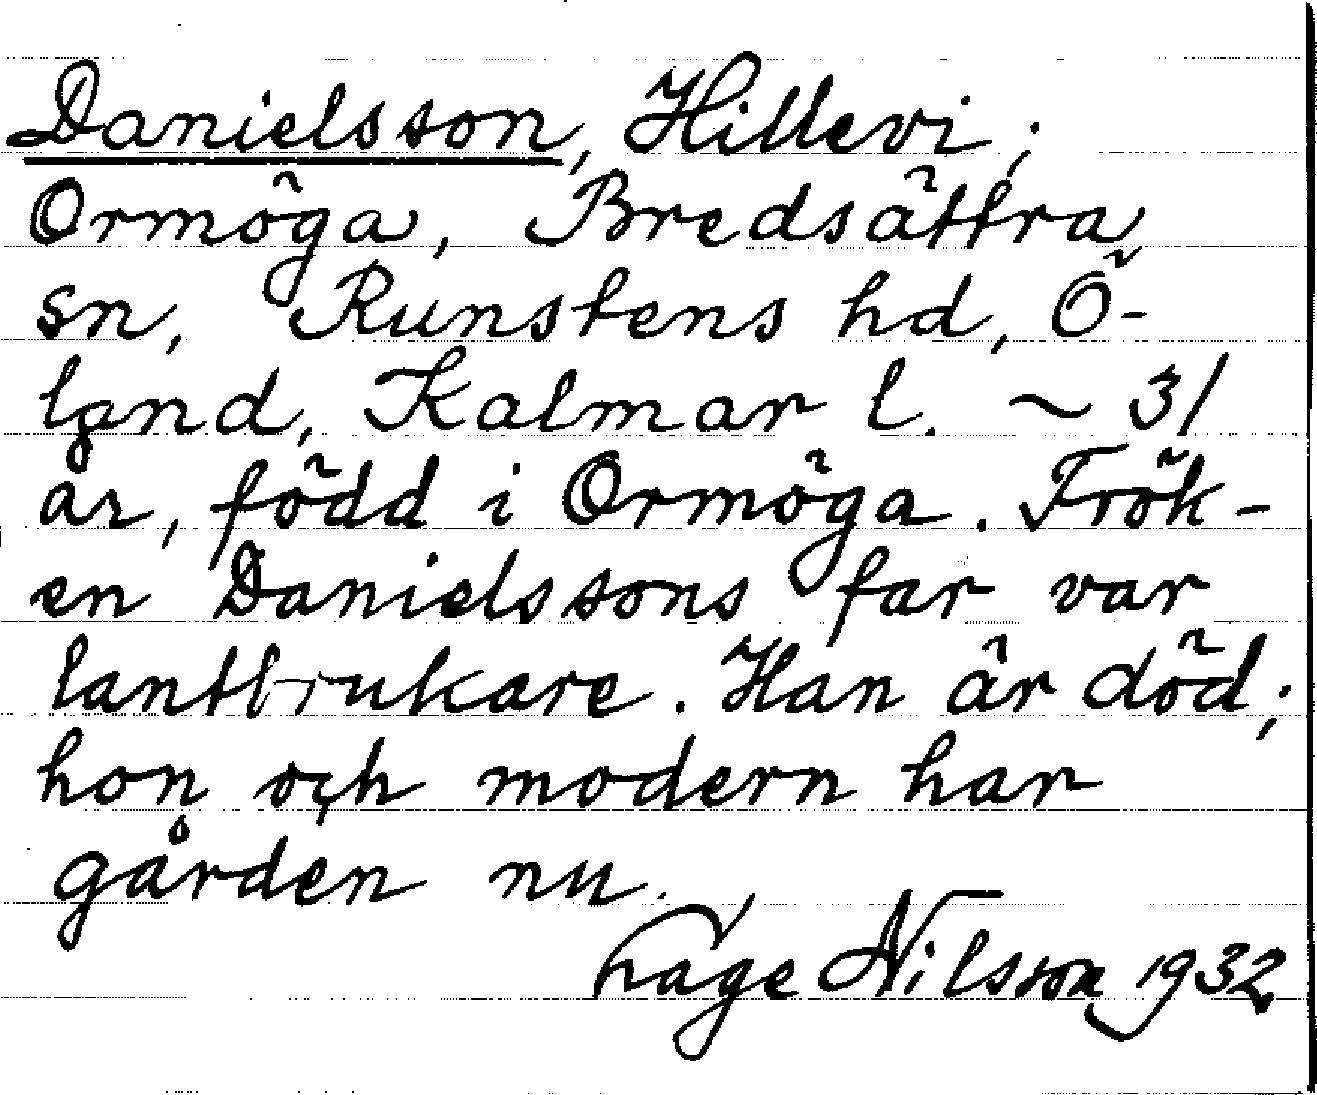 Danielsson, Hillevi;
Ormöga, Bredsättra
sn, Runstens hd, Ö-
land, Kalmar l. ~ 31
år, född i Ormöga. Frök-
en Danielssons far var
lantbrukare. Han är död;
hon och modern har
gården nu.
Lage Nilsson 1932